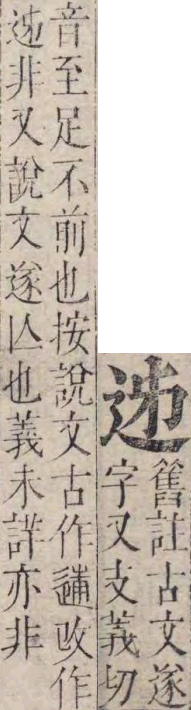 舊註古文遂
字又支義切
音至足不前也按說文古作改作
非又說文遂亾也義未詳亦非